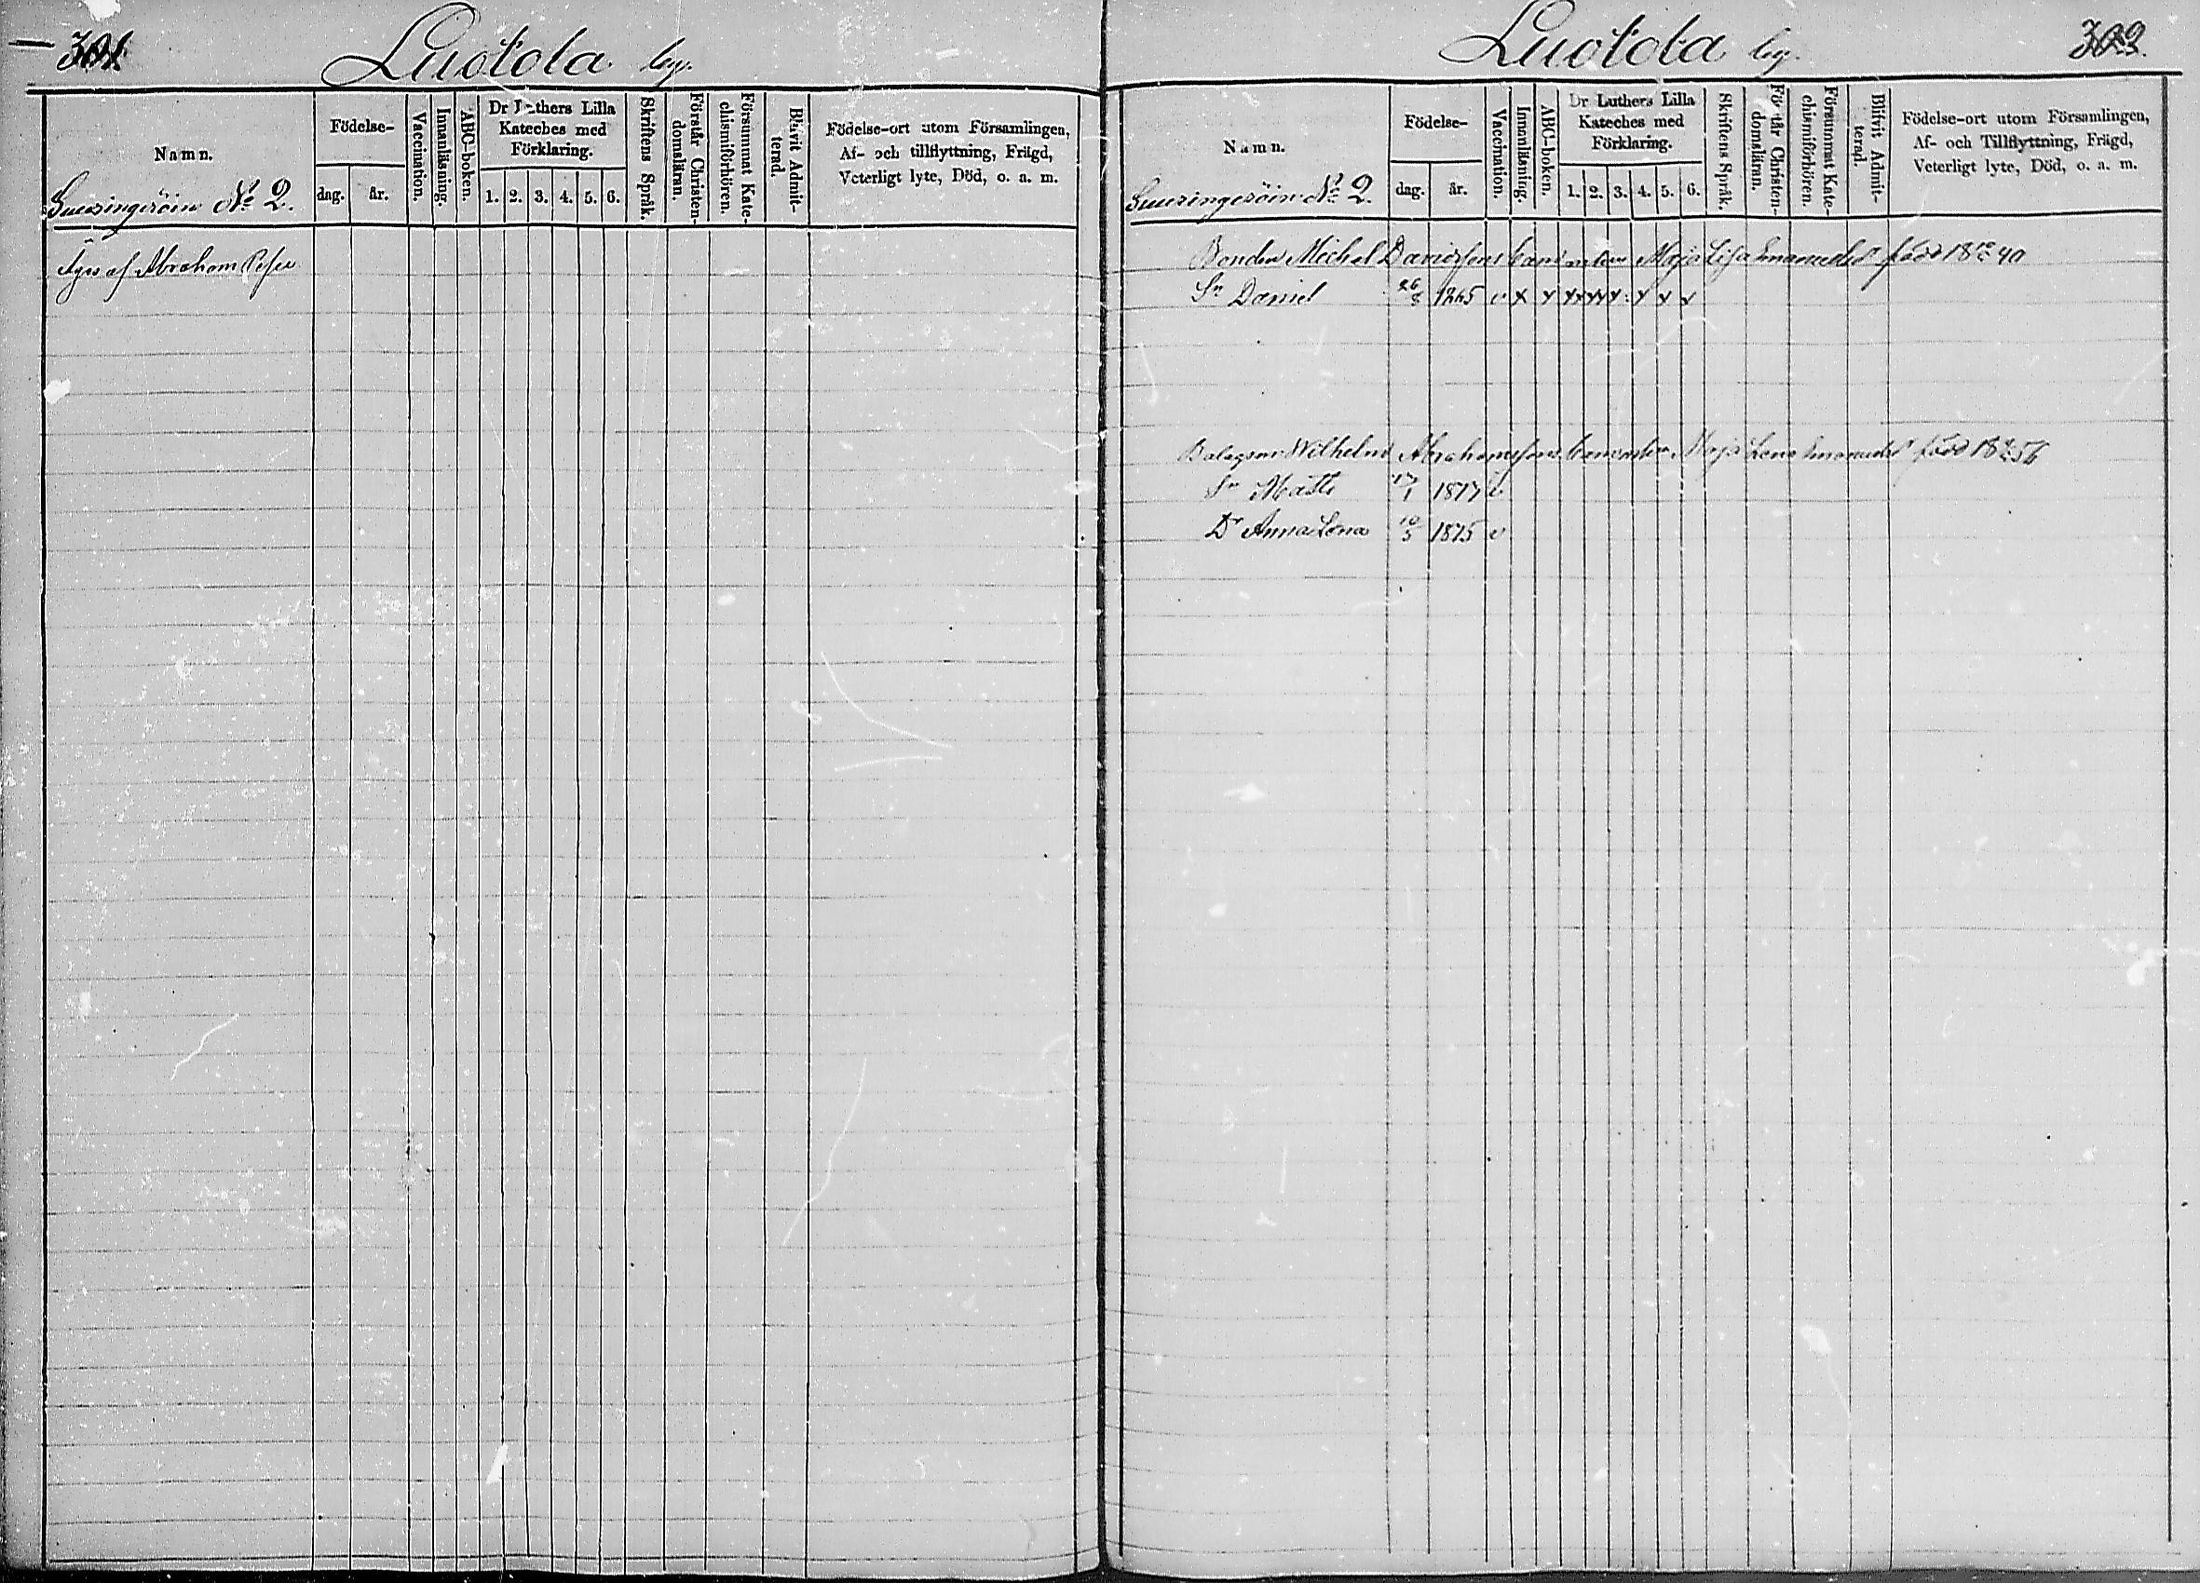 301.
Luotola by.
Namn.
Födelse-
dag. år.
Vaccination.
Innanläsning.
ABC-boken.
Dr Luthers Lilla
Kateches med
Förklaring.
1. 2. 3. 4. 5. 6.
Skriftens Språk.
Förstår Christen-
domsläran.
Försummat Kate-
chismiförhören.
Blifvit Admit-
terad.
Födelse-ort utom Församlingen,
Af- och tillflyttning, Frägd,
Veterligt lyte, Död, o. a. m.
No 2.
Äges af Abraham
Luotola by.
302.
Namn.
Födelse-
dag. år.
Vaccination.
Innanläsning.
ABC-boken.
Dr Luthers Lilla
Kateches med
Förklaring.
1. 2. 3. 4. 5. 6.
Skriftens Språk.
Förstår Christen-
domsläran.
Försummat Kate-
chismiförhören.
Blifvit Admit-
terad.
Födelse-ort utom Församlingen,
Af- och Tillflyttning, Frägd,
Veterligt lyte, Död, o. a. m.
No 2.
Bonden Michel Davidssons barn Maja Lisa född
Sn Daniel 26/8 1865 v x x x x x x x x x
Bolagsm Wilhelm Abrahamssons Maja Lena född
Sn Matts 17/1 1877 v
Dr Anna Lena 10/5 1875 v